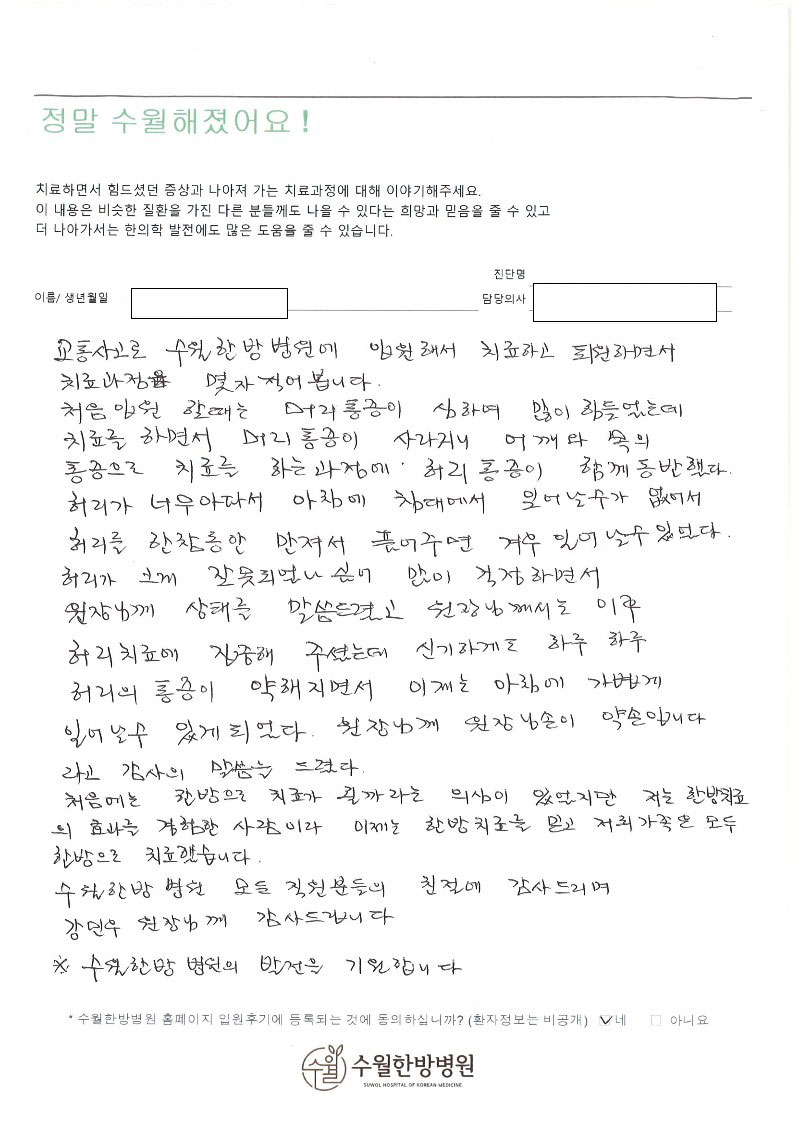 정말 수월해졌어요!
치료하면서 힘드셨던 증상과 나아져 가는 치료과정에 대해 이야기해주세요.
이 내용은 비슷한 질환을 가진 다른 분들께도 나을 수 있다는 희망과 믿음을 줄 수 있고
더 나아가서는 한의학 발전에도 많은 도움을 줄 수 있습니다.
진단명
이름/ 생년월일
담당의사
교통사고로 수월한방병원에 입원해서 치료하고 퇴원하면서
치료과정을 몇자 적어 봅니다.
처음 입원 할때는 머리통증이 심하여 많이 힘들었는데
치료를 하면서 머리통증이 사라지니 어깨와 목의
통증으로 치료를 하는과정에 허리통증이 함께동반했다.
허리가 너무아파서 아침에 침대에서 일어날수가 없어서
허리를 한참동안 만져서 풀어주면 겨우 일어날수있었다.
허리가 크게 잘못되었나 싶어 많이 걱정하면서
원장님께 상태를 말씀드렸고 원장님께서는 이후
허리치료에 집중해 주셨는데 신기하게도 하루 하루
허리의 통증이 약해지면서 이제는 아침에 가볍게
일어날수 있게되었다. 원장님께 원장님손이 약손입니다
라고 감사의 말씀을 드렸다.
처음에는 한방으로 치료가 될까라는 의심이 있었지만 저는 한방치료
의 효과를 경험한 사람이라 이제는 한방치료를 믿고 저희가족은 모두
한방으로 치료했습니다.
수월한방 병원 모든 직원분들의 친절에 감사드리며
강민우 원장님께 감사드립니다
※ 수월한방 병원의 발전을 기원합니다
* 수월한방병원 홈페이지 입원후기에 등록되는 것에 동의하십니까? (환자정보는 비공개) ☑네 □ 아니요
수월한방병원
SUWOL HOSPITAL OF KOREAN MEDICINE